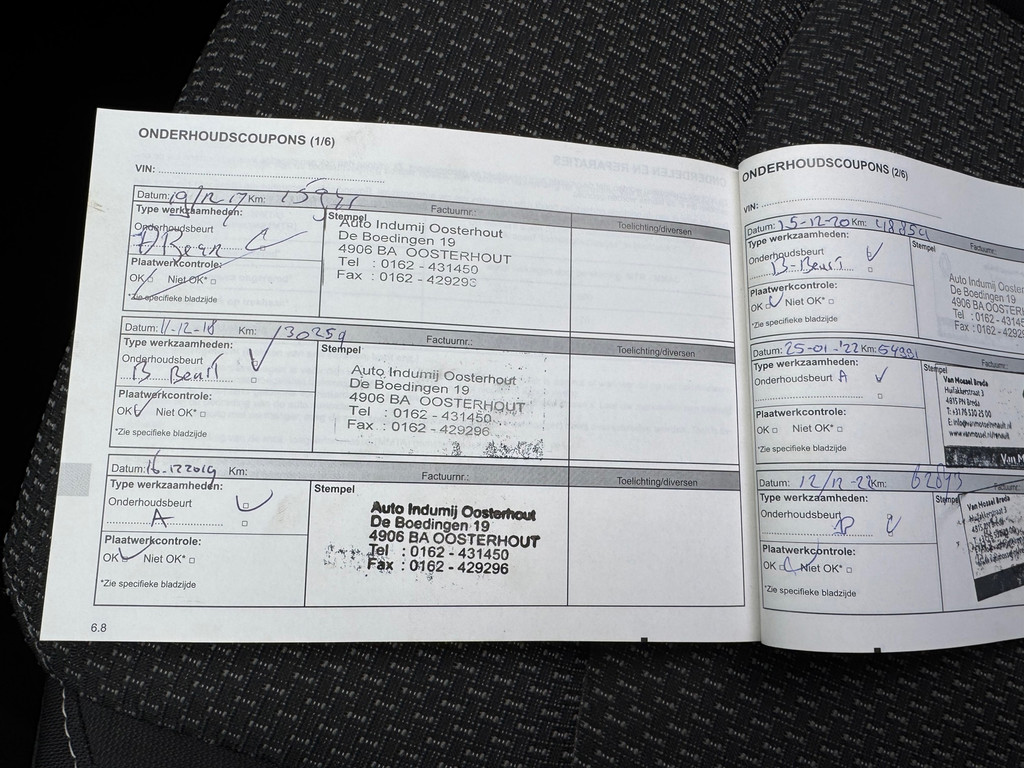 ONDERHOUDSCOUPONS (1/6)
VIN:
Datum: 19/12-17 Km:
Factuurnr.:
Toelichting/diversen
Type werkzaamheden:
Onderhoudsbeurt
Plaatwerkcontrole:
OK □ Niet OK* □
*Zie specifieke bladzijde
Stempel
Auto Indumij Oosterhout
De Boedingen 19
4906 BA OOSTERHOUT
Tel : 0162 - 431450
Fax : 0162 - 429296
Datum: 11-12-18 Km: 30259
Factuurnr.:
Toelichting/diversen
Type werkzaamheden:
Onderhoudsbeurt
B Beurt
Plaatwerkcontrole:
OK □ Niet OK* □
*Zie specifieke bladzijde
Stempel
Auto Indumij Oosterhout
De Boedingen 19
4906 BA OOSTERHOUT
Tel : 0162 - 431450
Fax : 0162 - 429296
Datum: 16-122019 Km:
Factuurnr.:
Toelichting/diversen
Type werkzaamheden:
Onderhoudsbeurt
A
Plaatwerkcontrole:
OK □ Niet OK* □
*Zie specifieke bladzijde
Stempel
Auto Indumij Oosterhout
De Boedingen 19
4906 BA OOSTERHOUT
Tel : 0162 - 431450
Fax : 0162 - 429296
6.8
ONDERHOUDSCOUPONS (2/6)
VIN:
Datum: 15-12-20 Km: 48859
Factuurnr.:
Type werkzaamheden:
Onderhoudsbeurt
B-Beurt
Plaatwerkcontrole:
OK □ Niet OK* □
*Zie specifieke bladzijde
Stempel
Auto Indumij Ooster
De Boedingen 19
4906 BA OOSTERH
Tel : 0162 - 43145
Fax : 0162 - 42929
Datum: 25-01-'22 Km: 54991
Factuurnr.:
Type werkzaamheden:
Onderhoudsbeurt A
Plaatwerkcontrole:
OK □ Niet OK* □
*Zie specifieke bladzijde
Stempel
Van Mossel Breda
4815 PN Breda
T: +31 76 530 25 00
Van M
Datum: 12/12-22 Km:
Factuurnr.:
Type werkzaamheden:
Onderhoudsbeurt
B
Plaatwerkcontrole:
OK □ Niet OK* □
*Zie specifieke bladzijde
Stempel
Van Mossel Breda